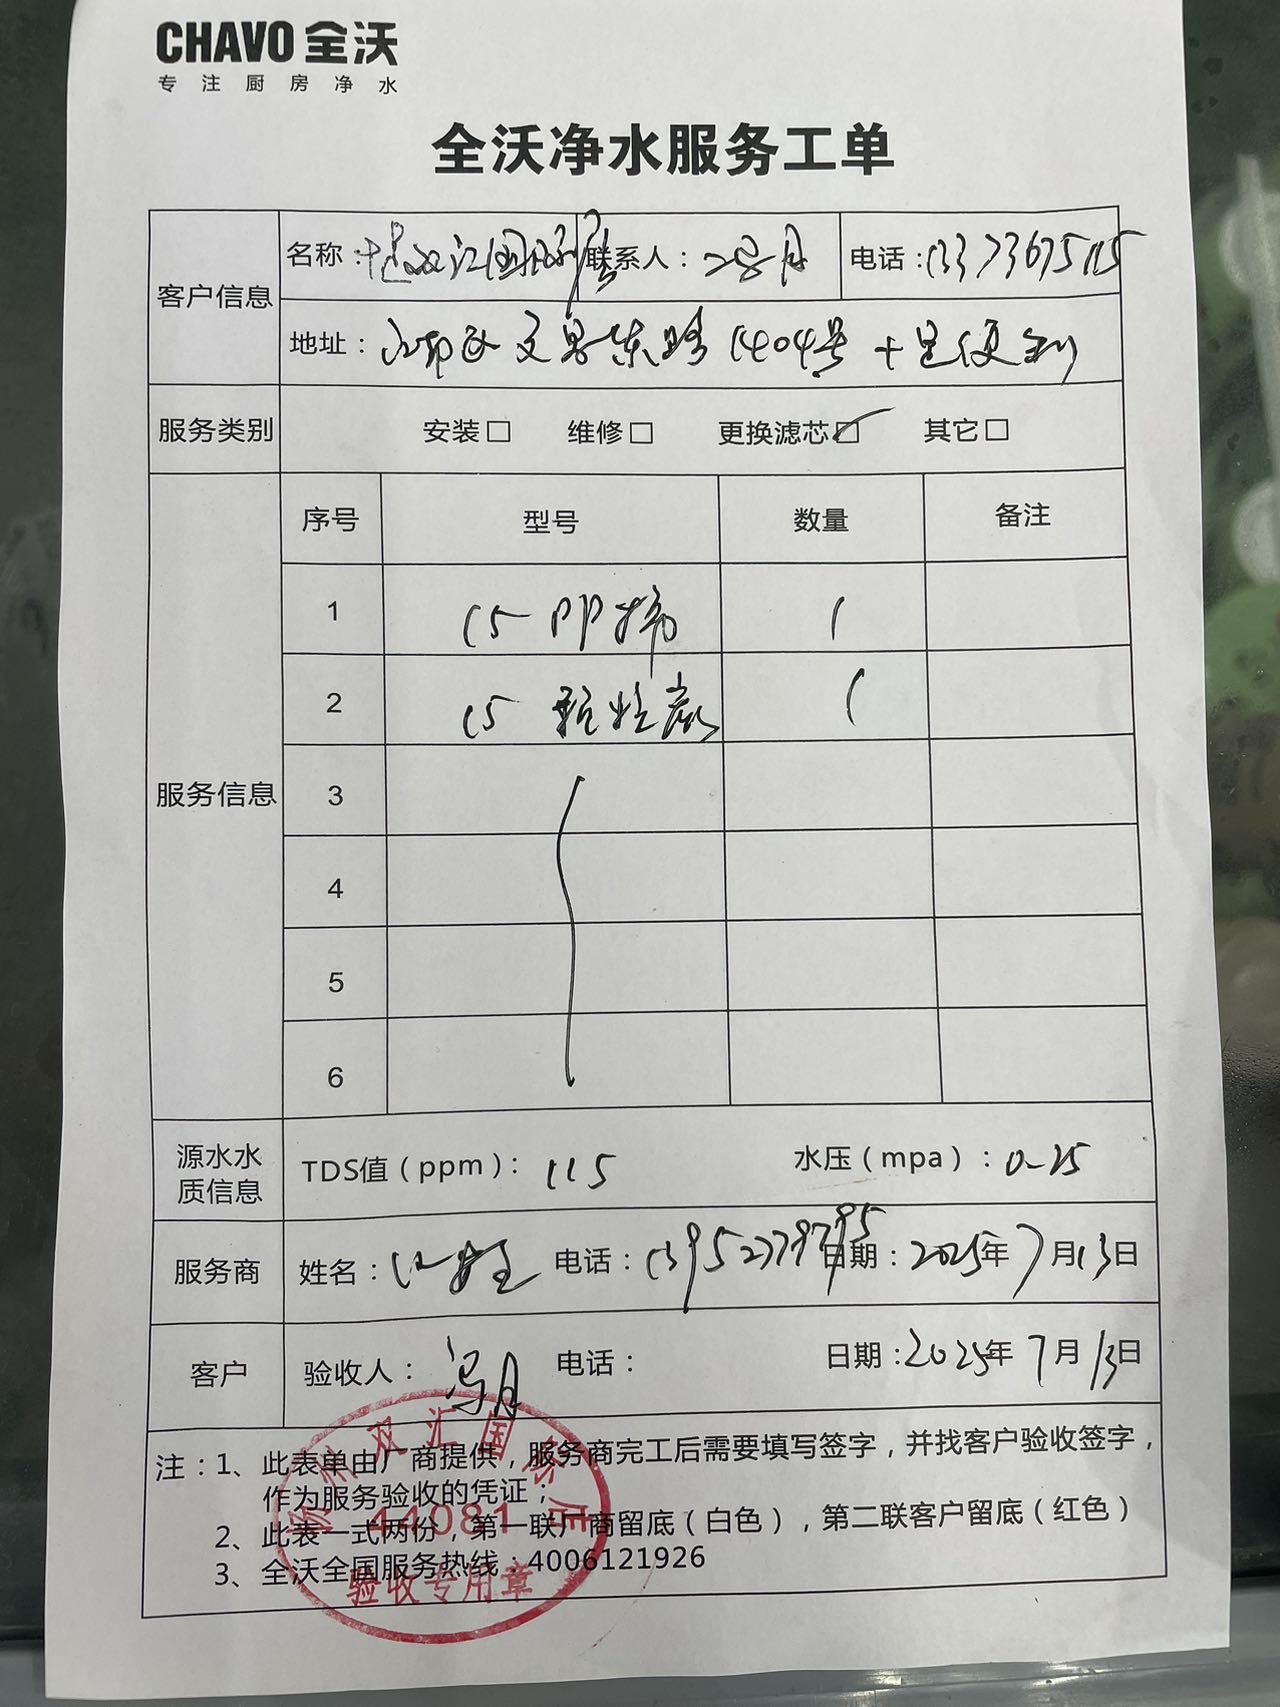 CHAVO 全沃
专注厨房净水
全沃净水服务工单
客户信息
名称：双汇国际 联系人：月 电话：13373675115
地址：文昌东路1404号 十足便利
服务类别 安装□ 维修□ 更换滤芯☑ 其它□
服务信息
序号 型号 数量 备注
1 15 PP棉 1
2 15 颗粒炭 1
3
4
5
6
源水水质信息 TDS值（ppm）：115 水压（mpa）：0.25
服务商 姓名： 电话：13952779795 日期：2025年7月13日
客户 验收人：冯月 电话： 日期：2025年7月13日
注：1、此表单由厂商提供，服务商完工后需要填写签字，并找客户验收签字，
作为服务验收的凭证；
2、此表一式两份，第一联厂商留底（白色），第二联客户留底（红色）
3、全沃全国服务热线：4006121926
扬州双汇国际店
44081
验收专用章